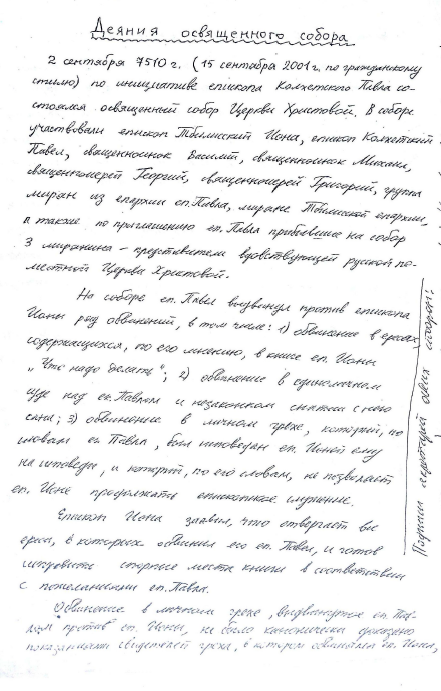 Деяния освященного собора
2 сентября 7510 г. (15 сентября 2001 г. по гражданскому
стилю) по инициативе епископа Колхетского Павла со-
стоялся освященный собор Церкви Христовой. В соборе
участвовали епископ Тбилисский Иона, епископ Колхетский
Павел, священноинок Василий, священноинок Михаил,
священноиерей Георгий, священноиерей Григорий, группа
мирян из епархии еп. Павла, миряне Тбилисской епархии,
а также по приглашению еп. Павла прибывшие на собор
3 мирянина – представители вдовствующей русской по-
местной Церкви Христовой.
На соборе еп. Павел выдвинул против епископа
Ионы ряд обвинений, в том числе: 1) обвинение в ересях,
содержащихся, по его мнению, в книге еп. Ионы
„Что надо делать"; 2) обвинение в единоличном
суде над еп. Павлом и незаконном снятии с него
сана; 3) обвинение в личном грехе, который, по
словам еп. Павла, был исповедан еп. Ионой ему
на исповеди, и который, по его словам, не позволяет
еп. Ионе продолжать епископское служение.
Епископ Иона заявил, что отвергает все
ереси, в которых обвинил его еп. Павел, и готов
исправить спорные места книги в соответствии
с пожеланиями еп. Павла.
Обвинение в личном грехе, выдвинутое еп. Пав-
лом против еп. Ионы, не было канонически доказано
показаниями свидетелей греха, в котором обвинялся еп. Иона,
Подписи сторон